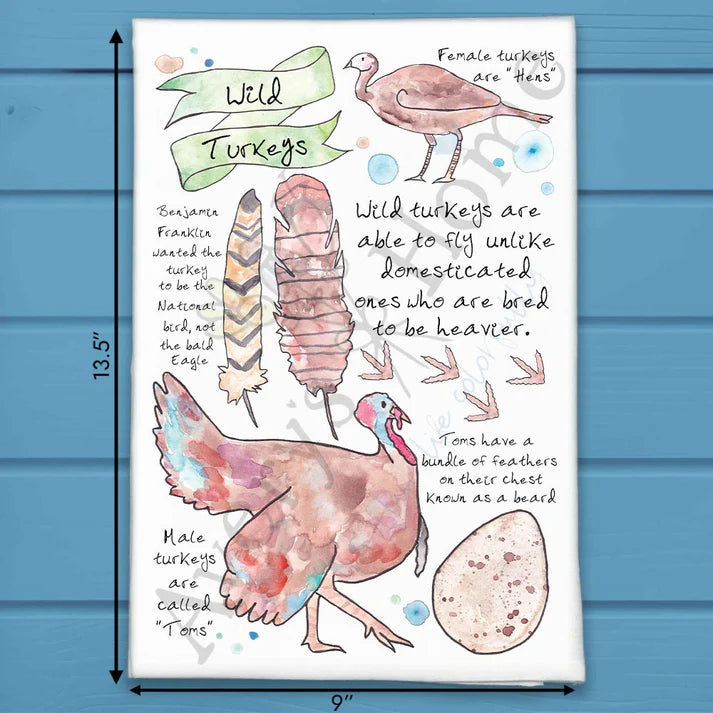 Wild
Turkeys
Female turkeys
are "Hens"
Benjamin
Franklin
wanted the
turkey
to be the
National
bird, not
the bald
Eagle
Wild turkeys are
able to fly unlike
domesticated
ones who are bred
to be heavier.
Toms have a
bundle of feathers
on their chest
known as a beard
Male
turkeys
are
called
"Toms"
13.5"
9"
Home
life colorfully